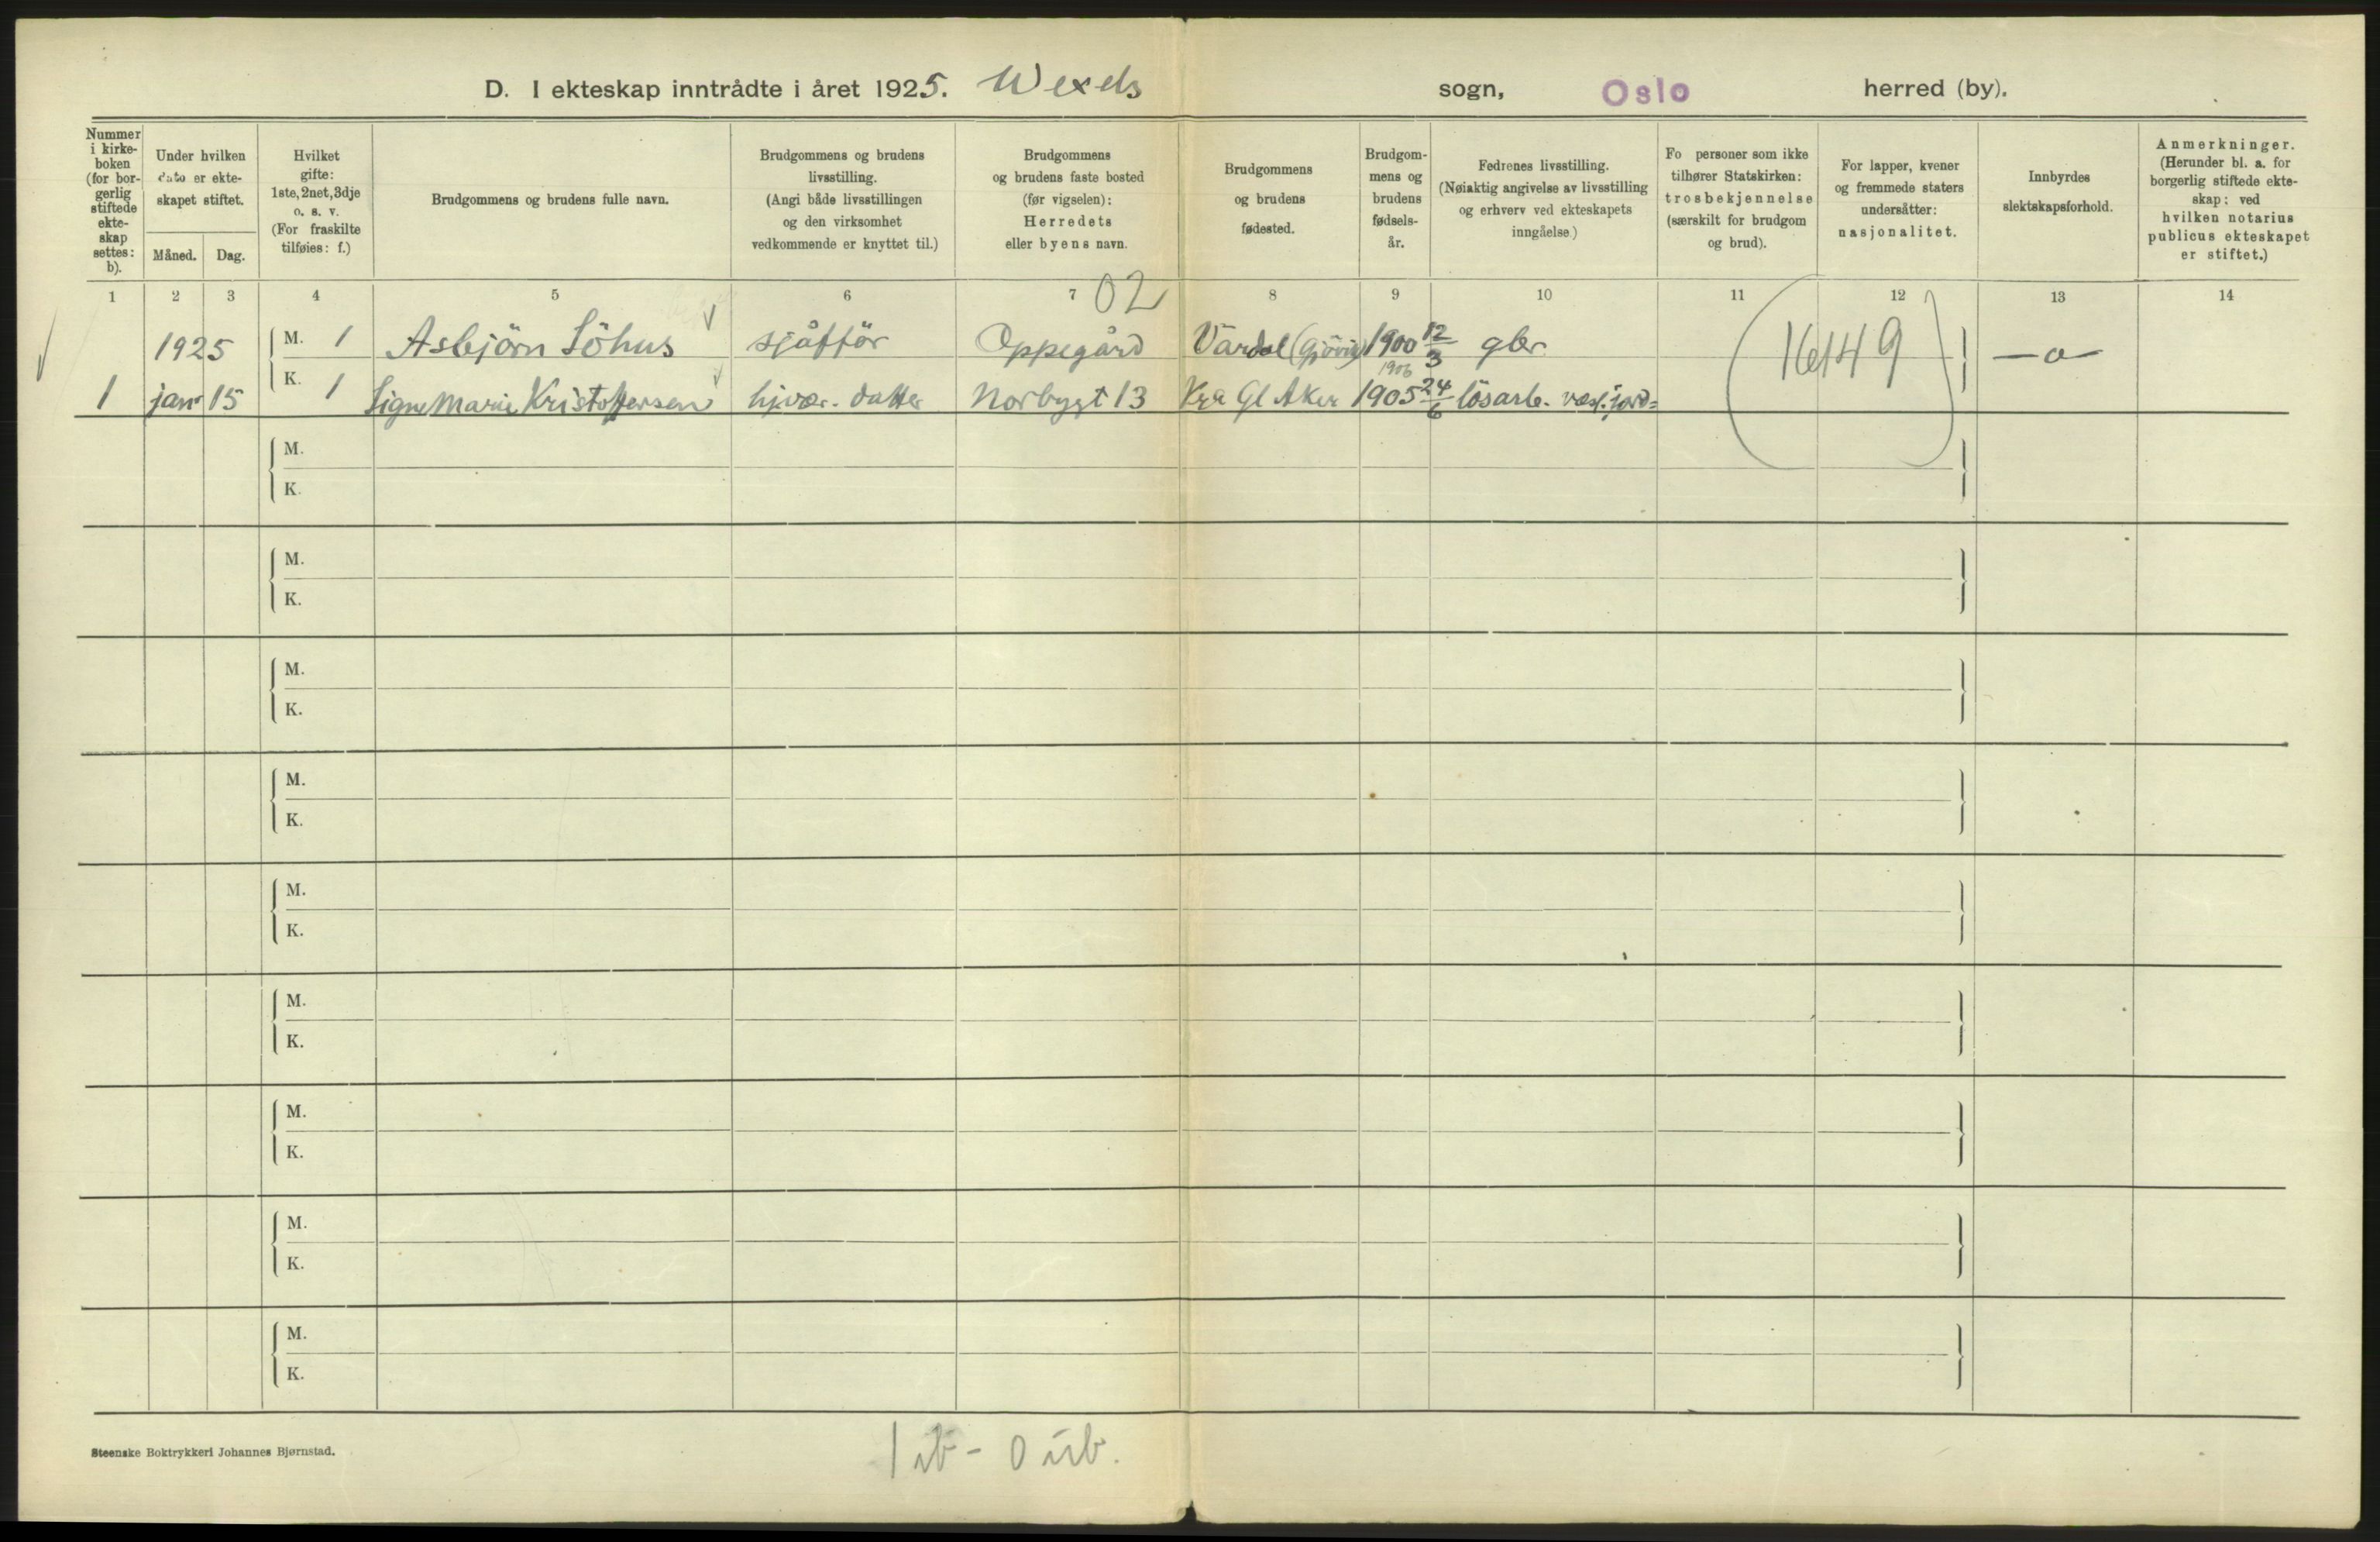 D. I ekteskap inntrådte i året 1925. Wexels sogn, Oslo herred (by).
Nummer i kirke- boken (for bor- gerlig stiftede ekte- skap settes: b).
Under hvilken dato er ekte- skapet stiftet.
Måned. Dag.
Hvilket gifte: 1ste, 2net, 3dje o. s. v. (For fraskilte tilføies: f.)
Brudgommens og brudens fulle navn.
Brudgommens og brudens livsstilling. (Angi både livsstillingen og den virksomhet vedkommende er knyttet til.)
Brudgommens og brudens faste bosted (før vigselen): Herredets eller byens navn.
Brudgommens og brudens fødested.
Brudgom- mens og brudens fødsels- år.
Fedrenes livsstilling. (Nøiaktig angivelse av livsstilling og erhverv ved ekteskapets inngåelse.)
Fo personer som ikke tilhører Statskirken: trosbekjennelse (særskilt for brudgom og brud).
For lapper, kvener og fremmede staters undersåtter: nasjonalitet.
Innbyrdes slektskapsforhold.
Anmerkninger. (Herunder bl. a. for borgerlig stiftede ekte- skap: ved hvilken notarius publicus ekteskapet er stiftet.)
1 2 3 4 5 6 7 02 8 9 10 11 12 13 14
1925 M. 1 Asbjörn Söhus sjåfför Oppegård Vardal (Gjövig) 1900 12/3 gbr. (16149) —o—
1906
1 jan 15 K. 1 Signe Marie Kristoffersen hjvær. datter Norbygt 13 Kra Gl Aker 1905 24/6 lösarb.
M.
K.
M.
K.
M.
K.
M.
K.
M.
K.
M.
K.
M.
K.
M.
K.
M.
K.
Steenske Boktrykkeri Johannes Bjørnstad.
1 ib - 0 uib.